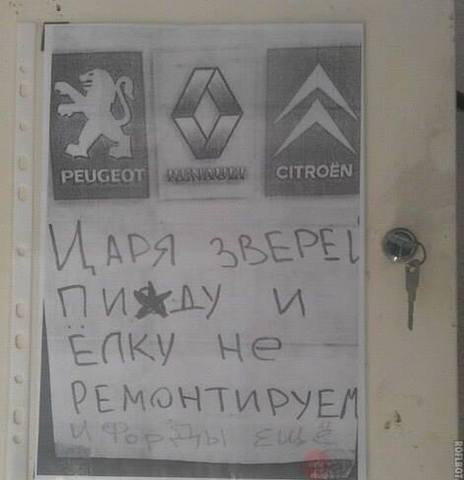 PEUGEOT RENAULT CITROËN
ЦАРЯ ЗВЕРЕЙ
ПИ★ДУ И
ЁЛКУ Не
РЕМОНТИРУЕМ
И ФОРДЫ ЕЩЁ
ROFLBOT